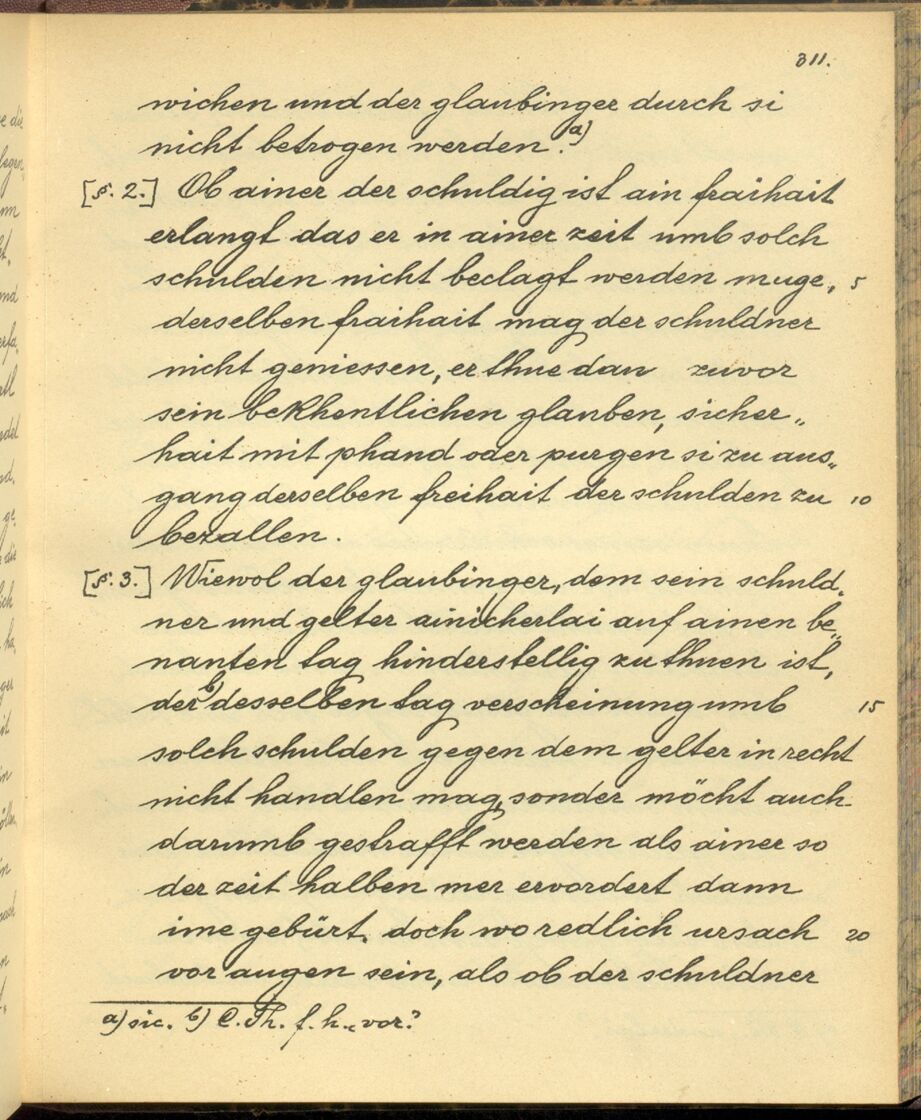 311.
wichen und der glaubinger durch si
nicht betrogen werden.a)
[§. 2.] Ob ainer der schuldig ist ain fraihait
erlangt das er in ainer zeit umb solch
schulden nicht beclagt werden muge, 5
derselben fraihait mag der schuldner
nicht geniessen, er thue dan zuvor
sein bekhentlichen glauben, sicher„
hait mit phand oder purgen si zu aus„
gang derselben freihait der schulden zu 10
bezallen.
[§. 3.] Wiewol der glaubinger, dem sein schuld„
ner und gelter ainicherlai auf ainen be„
nanten tag hinderstellig zu thuen ist,
der b) desselben tag verscheinung umb 15
solch schulden gegen dem gelter in recht
nicht handlen mag, sonder möcht auch
darumb gestrafft werden als ainer so
der zeit halben mer ervordert dann
ime gebürt, doch wo redlich ursach 20
vor augen sein, als ob der schuldner
a) sic. b) C. Th. f. h. „vor?